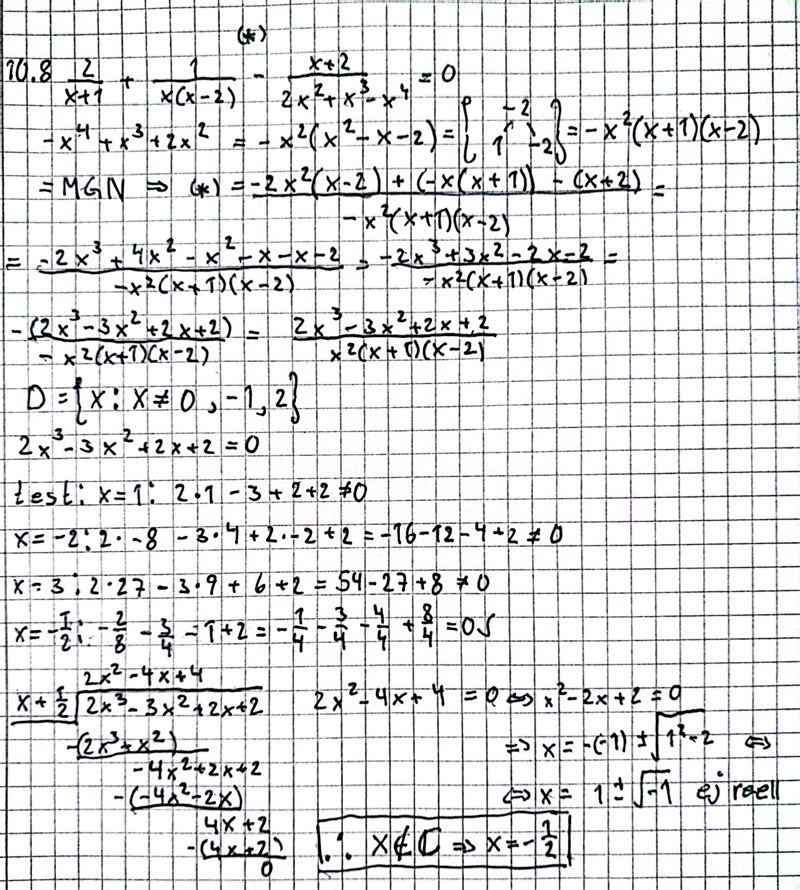 (*)
10.8 2/(x+1) + 1/(x(x-2)) - (x+2)/(2x²+x³-x⁴) = 0
-x⁴+x³+2x² = -x²(x²-x-2) = { -2 1 -2 } = -x²(x+1)(x-2)
= MGN ⇒ (*) = (-2x²(x-2) + (-x(x+1)) - (x+2))/(-x²(x+1)(x-2)) =
= (-2x³+4x²-x²-x-x-2)/(-x²(x+1)(x-2)) = (-2x³+3x²-2x-2)/(-x²(x+1)(x-2)) =
-(2x³-3x²+2x+2)/(-x²(x+1)(x-2)) = (2x³-3x²+2x+2)/(x²(x+1)(x-2))
D = {x: x≠0, -1, 2}
2x³-3x²+2x+2=0
test: x=1: 2·1 -3+2+2≠0
x=-2: 2·-8 -3·4+2·-2+2=-16-12-4+2≠0
x=3: 2·27 -3·9+6+2=54-27+8≠0
x=-1/2: -2/8 - 3/4 -1+2 = -1/4 - 3/4 - 4/4 + 8/4 = 0
2x²-4x+4
x+1/2 2x³-3x²+2x+2 2x²-4x+4=0 ⇔ x²-2x+2=0
-(2x³+x²) ⇒ x=-(-1) ± √(1²-2) ⇔
-4x²+2x+2
-(-4x²-2x) ⇔ x = 1±√-1 ej reell
4x+2
-(4x+2) ∴ x∉ℂ ⇒ x=-1/2
0